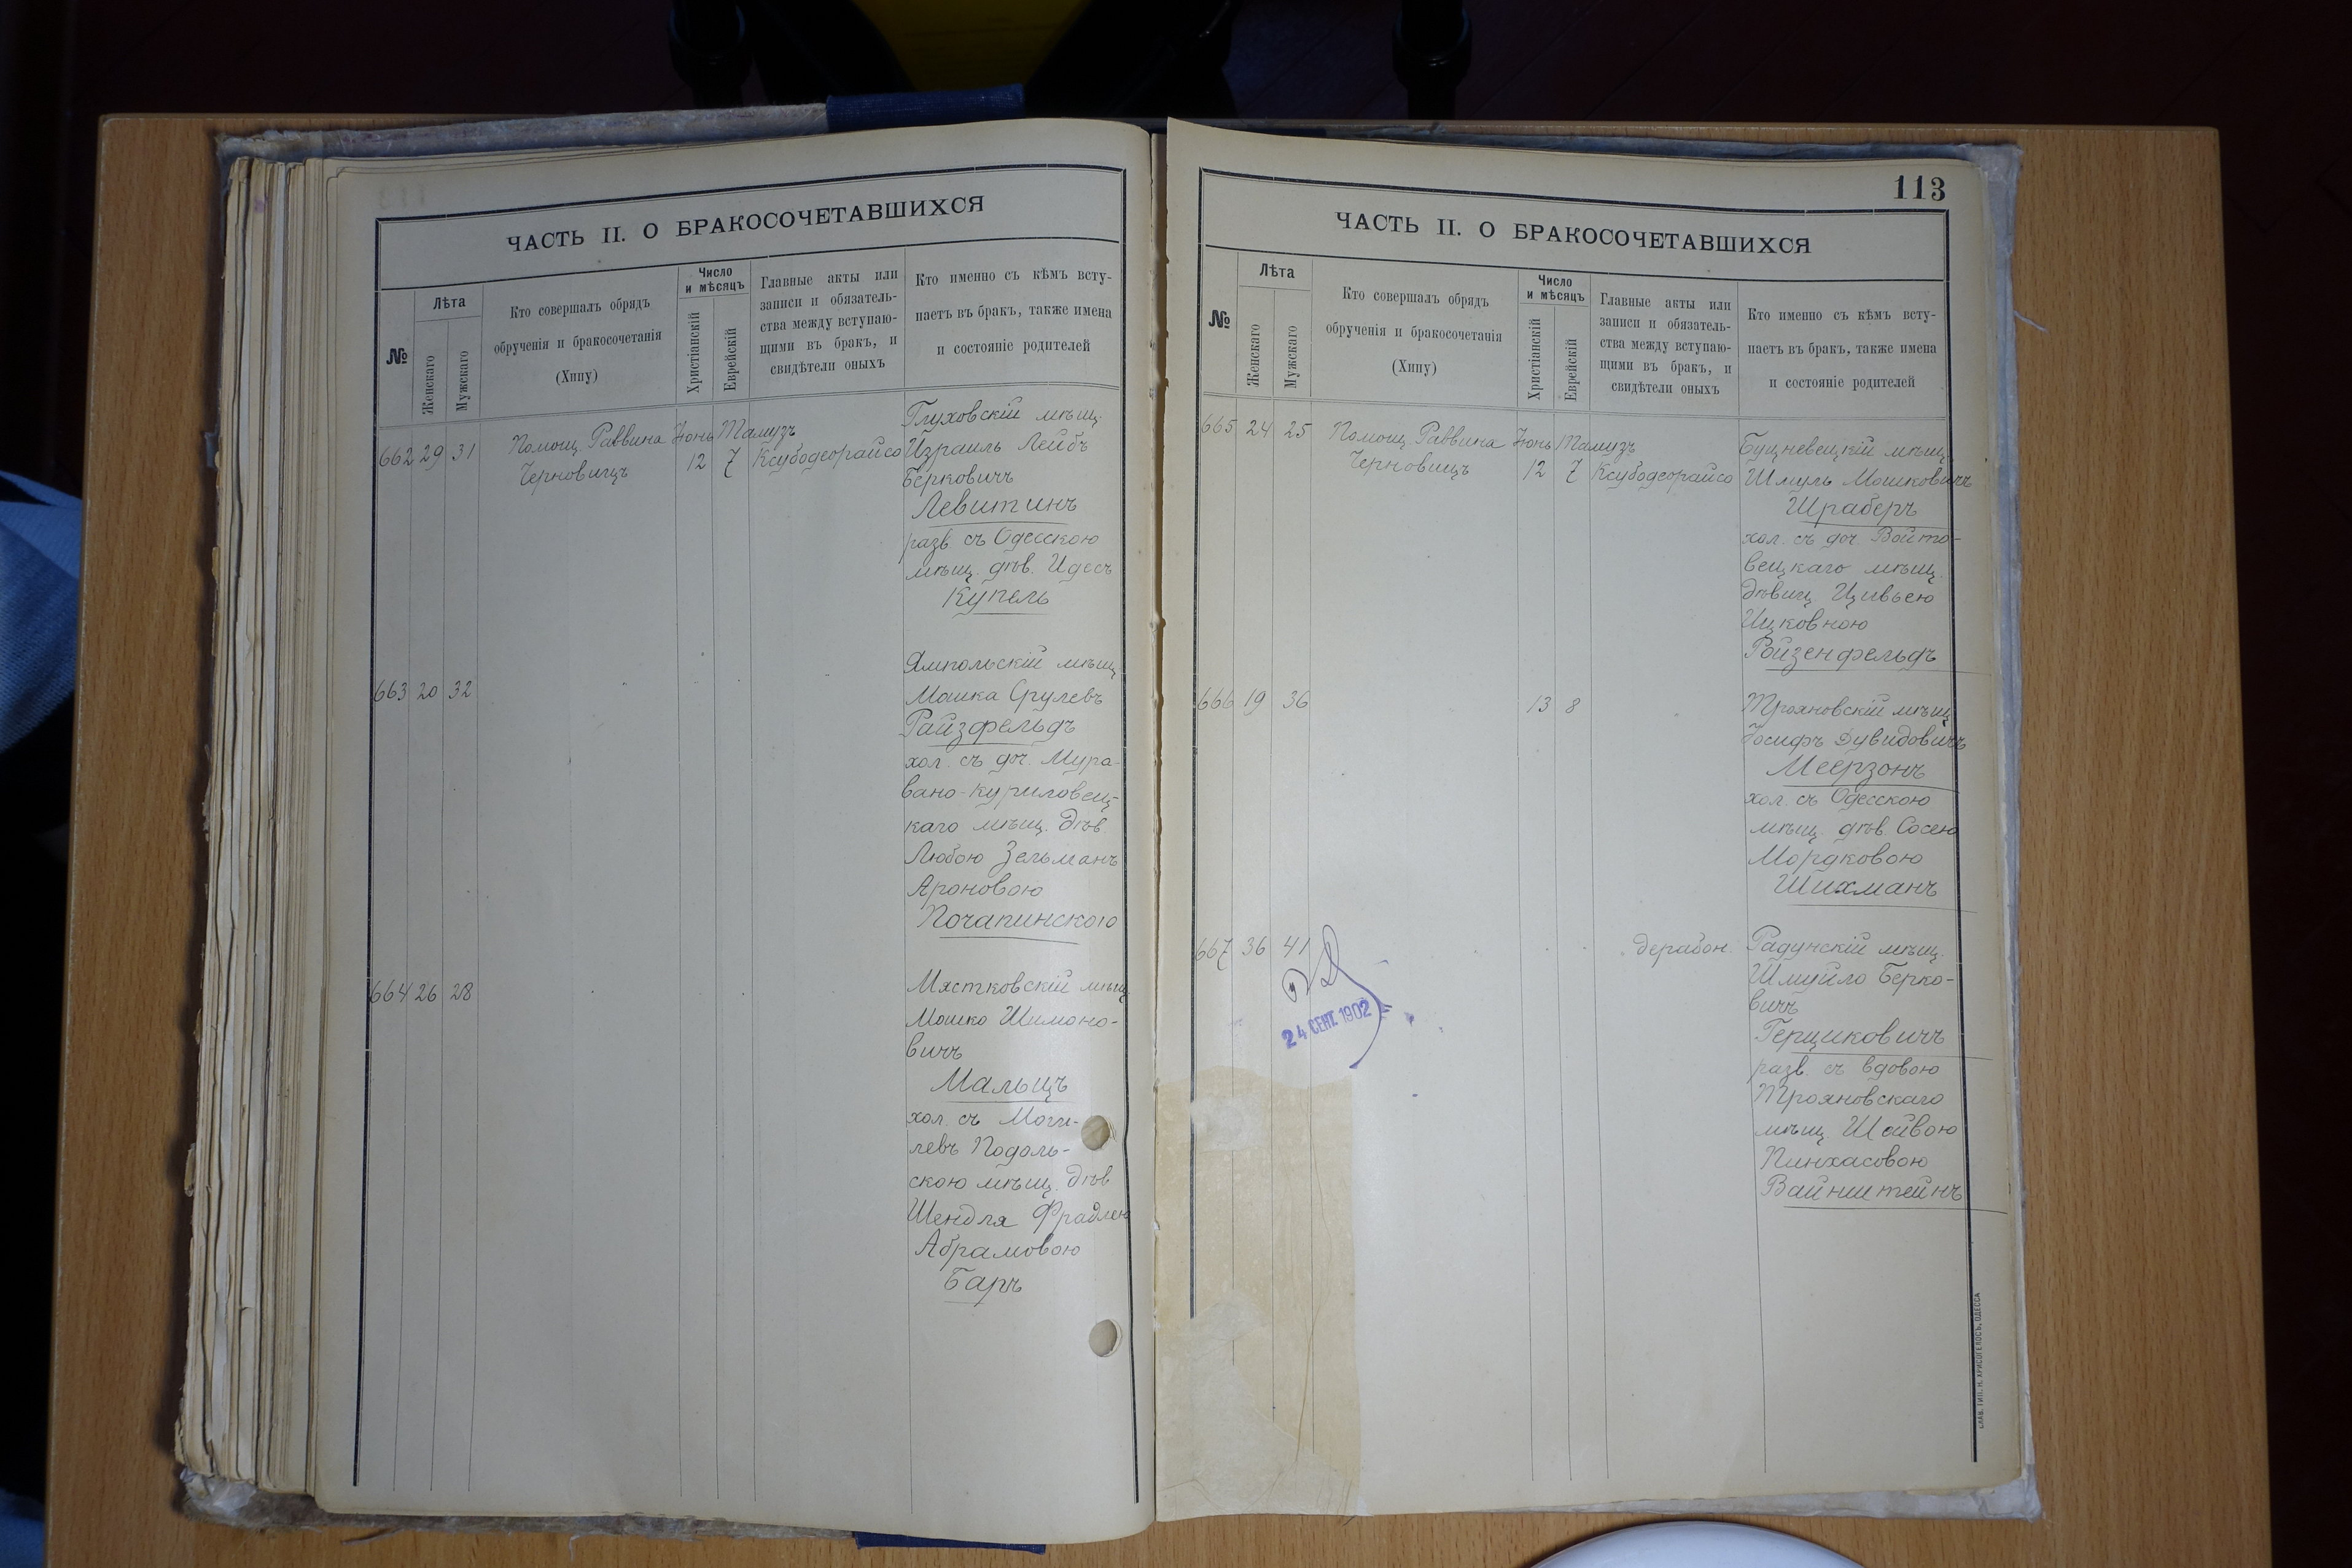 ЧАСТЬ II. О БРАКОСОЧЕТАВШИХСЯ
№
Лѣта
Женскаго
Мужскаго
Кто совершалъ обрядъ
обрученія и бракосочетанія
(Хипу)
Число
и мѣсяцъ
Христіанскій
Еврейскій
Главные акты или
записи и обязатель-
ства между вступаю-
щими въ бракъ, и
свидѣтели оныхъ
Кто именно съ кѣмъ всту-
паетъ въ бракъ, также имена
и состояніе родителей
662 29 31 Помощ. Раввина Іюнь Тамузъ
Черновицъ 12 7 Ксубодеорайсо
Глуховскій мѣщ.
Израиль Лейбъ
Берковичъ
Левитинъ
разв. съ Одесскою
мѣщ. дѣв. Идесъ
Купель
663 20 32
Ямпольскій мѣщ.
Мошка Срулевъ
Райзфельдъ
хол. съ доч. Мура-
вано-Куриловец-
каго мѣщ. дѣв.
Любою Зельманъ
Ароновою
Почапинскою
664 26 28
Мястковскій мѣщ.
Мошко Шимоно-
вичъ
Мальцъ
хол. съ Моги-
левъ Подоль-
скою мѣщ. дѣв
Шендля Фрадлею
Абрамовою
Баръ
113
ЧАСТЬ II. О БРАКОСОЧЕТАВШИХСЯ
№
Лѣта
Женскаго
Мужскаго
Кто совершалъ обрядъ
обрученія и бракосочетанія
(Хипу)
Число
и мѣсяцъ
Христіанскій
Еврейскій
Главные акты или
записи и обязатель-
ства между вступаю-
щими въ бракъ, и
свидѣтели оныхъ
Кто именно съ кѣмъ всту-
паетъ въ бракъ, также имена
и состояніе родителей
665 24 25 Помощ. Раввина Іюнь Тамузъ
Черновицъ 12 7 Ксубодеорайсо
Буцневецкій мѣщ.
Шмуль Мошковичъ
Шраберъ
хол. съ доч. Войто-
вецкаго мѣщ.
дѣвиц. Цивьею
Ицковною
Ройзенфельдъ
666 19 36 13 8
Трояновскій мѣщ
Іосифъ Дувидовичъ
Меерзонъ
хол. съ Одесскою
мѣщ. дѣв. Сосею
Мордковою
Шихманъ
667 36 41 дерабон.
Радунскій мѣщ.
Шмуйло Берко-
вичъ
Герциковичъ
разв. съ вдовою
Трояновскаго
мѣщ. Шейвою
Пинхасовою
Вайнштейнъ
24 СЕНТ. 1902
СЛАВ. ТИП. Н. ХРИСОГЕЛОСЪ, ОДЕССА